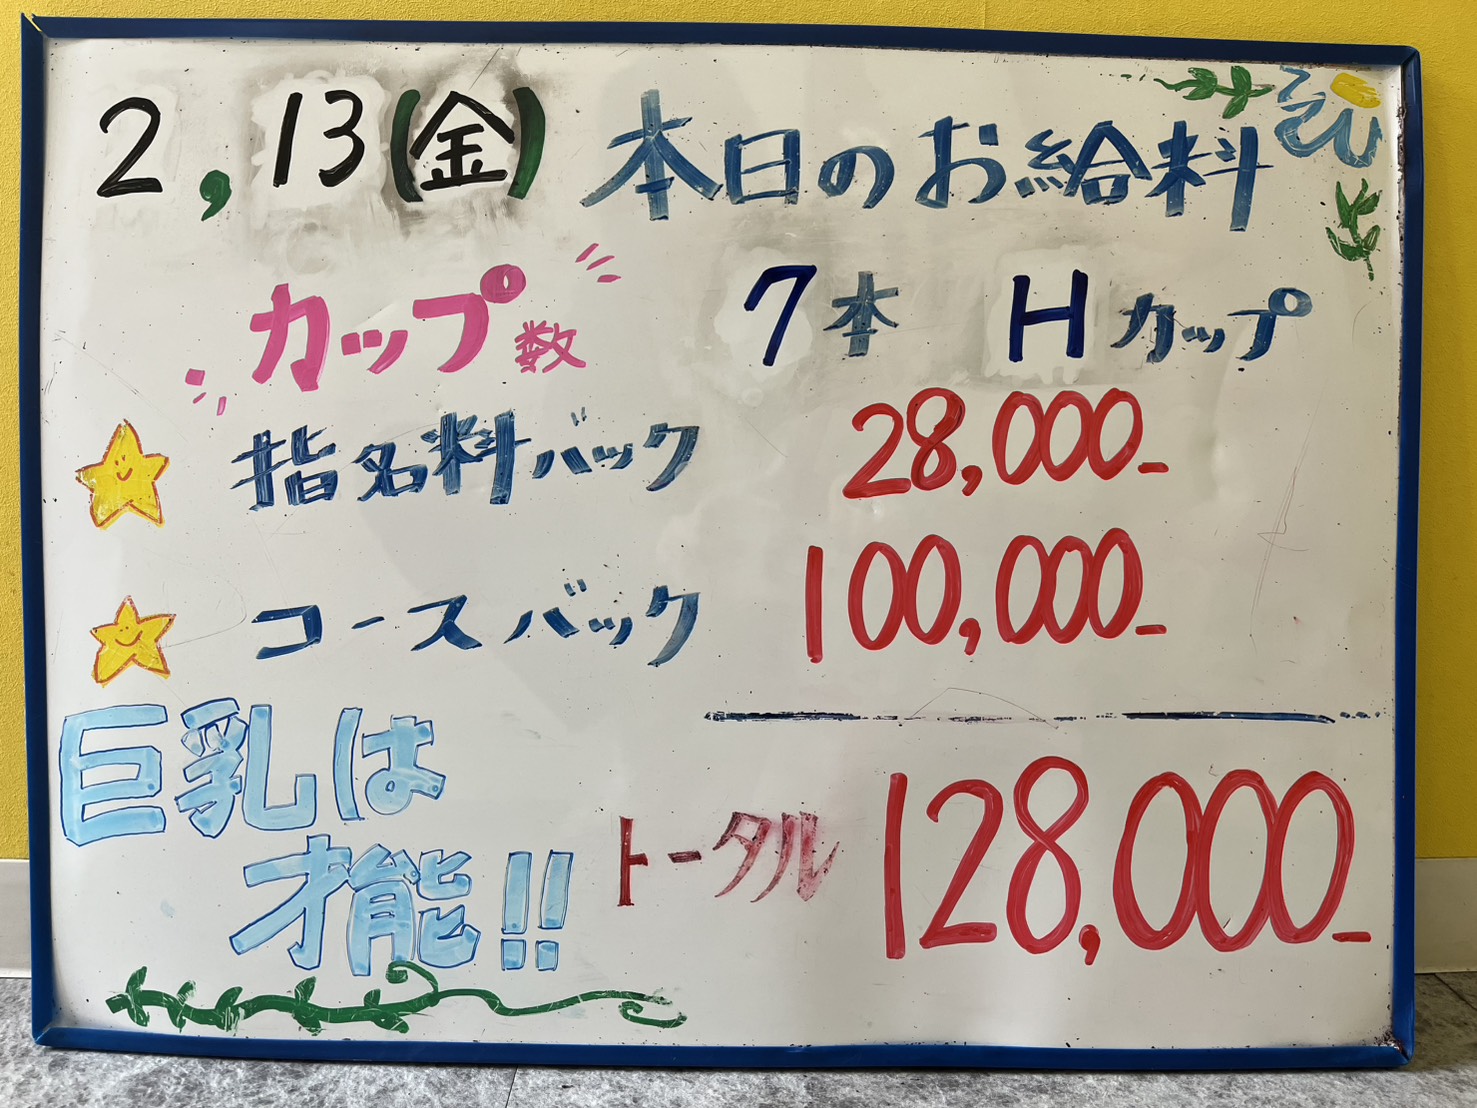 2,13(金) 本日のお給料
カップ数 7本 Hカップ
指名料バック 28,000-
コースバック 100,000-
巨乳は
才能!!
トータル 128,000-